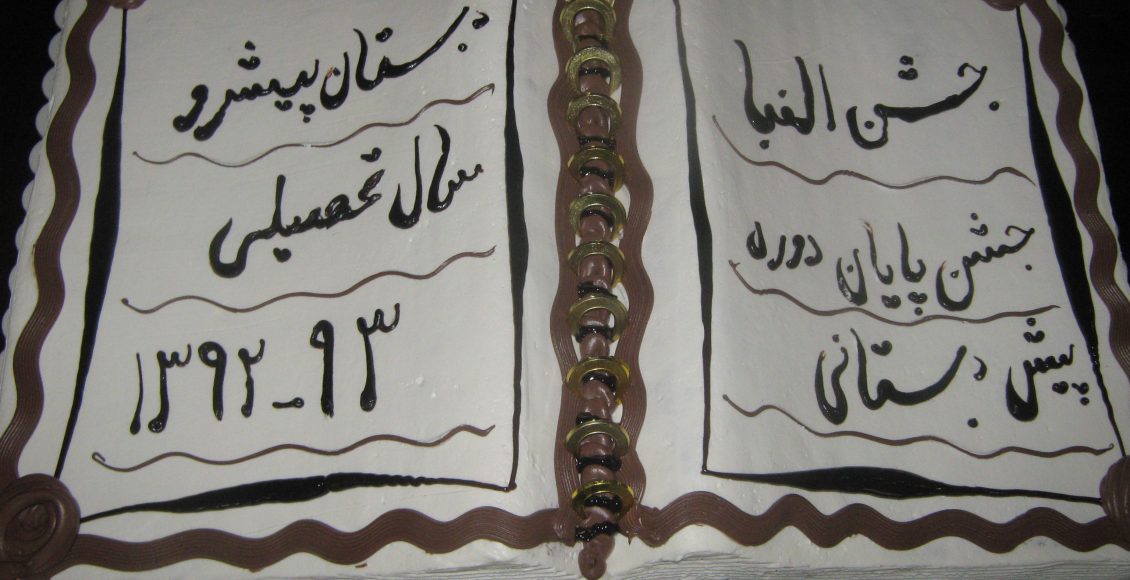 جشن الفبا
جشن پایان دوره
پیش دبستانی
دبستان پیشرو
سال تحصیلی
۱۳۹۲-۹۳